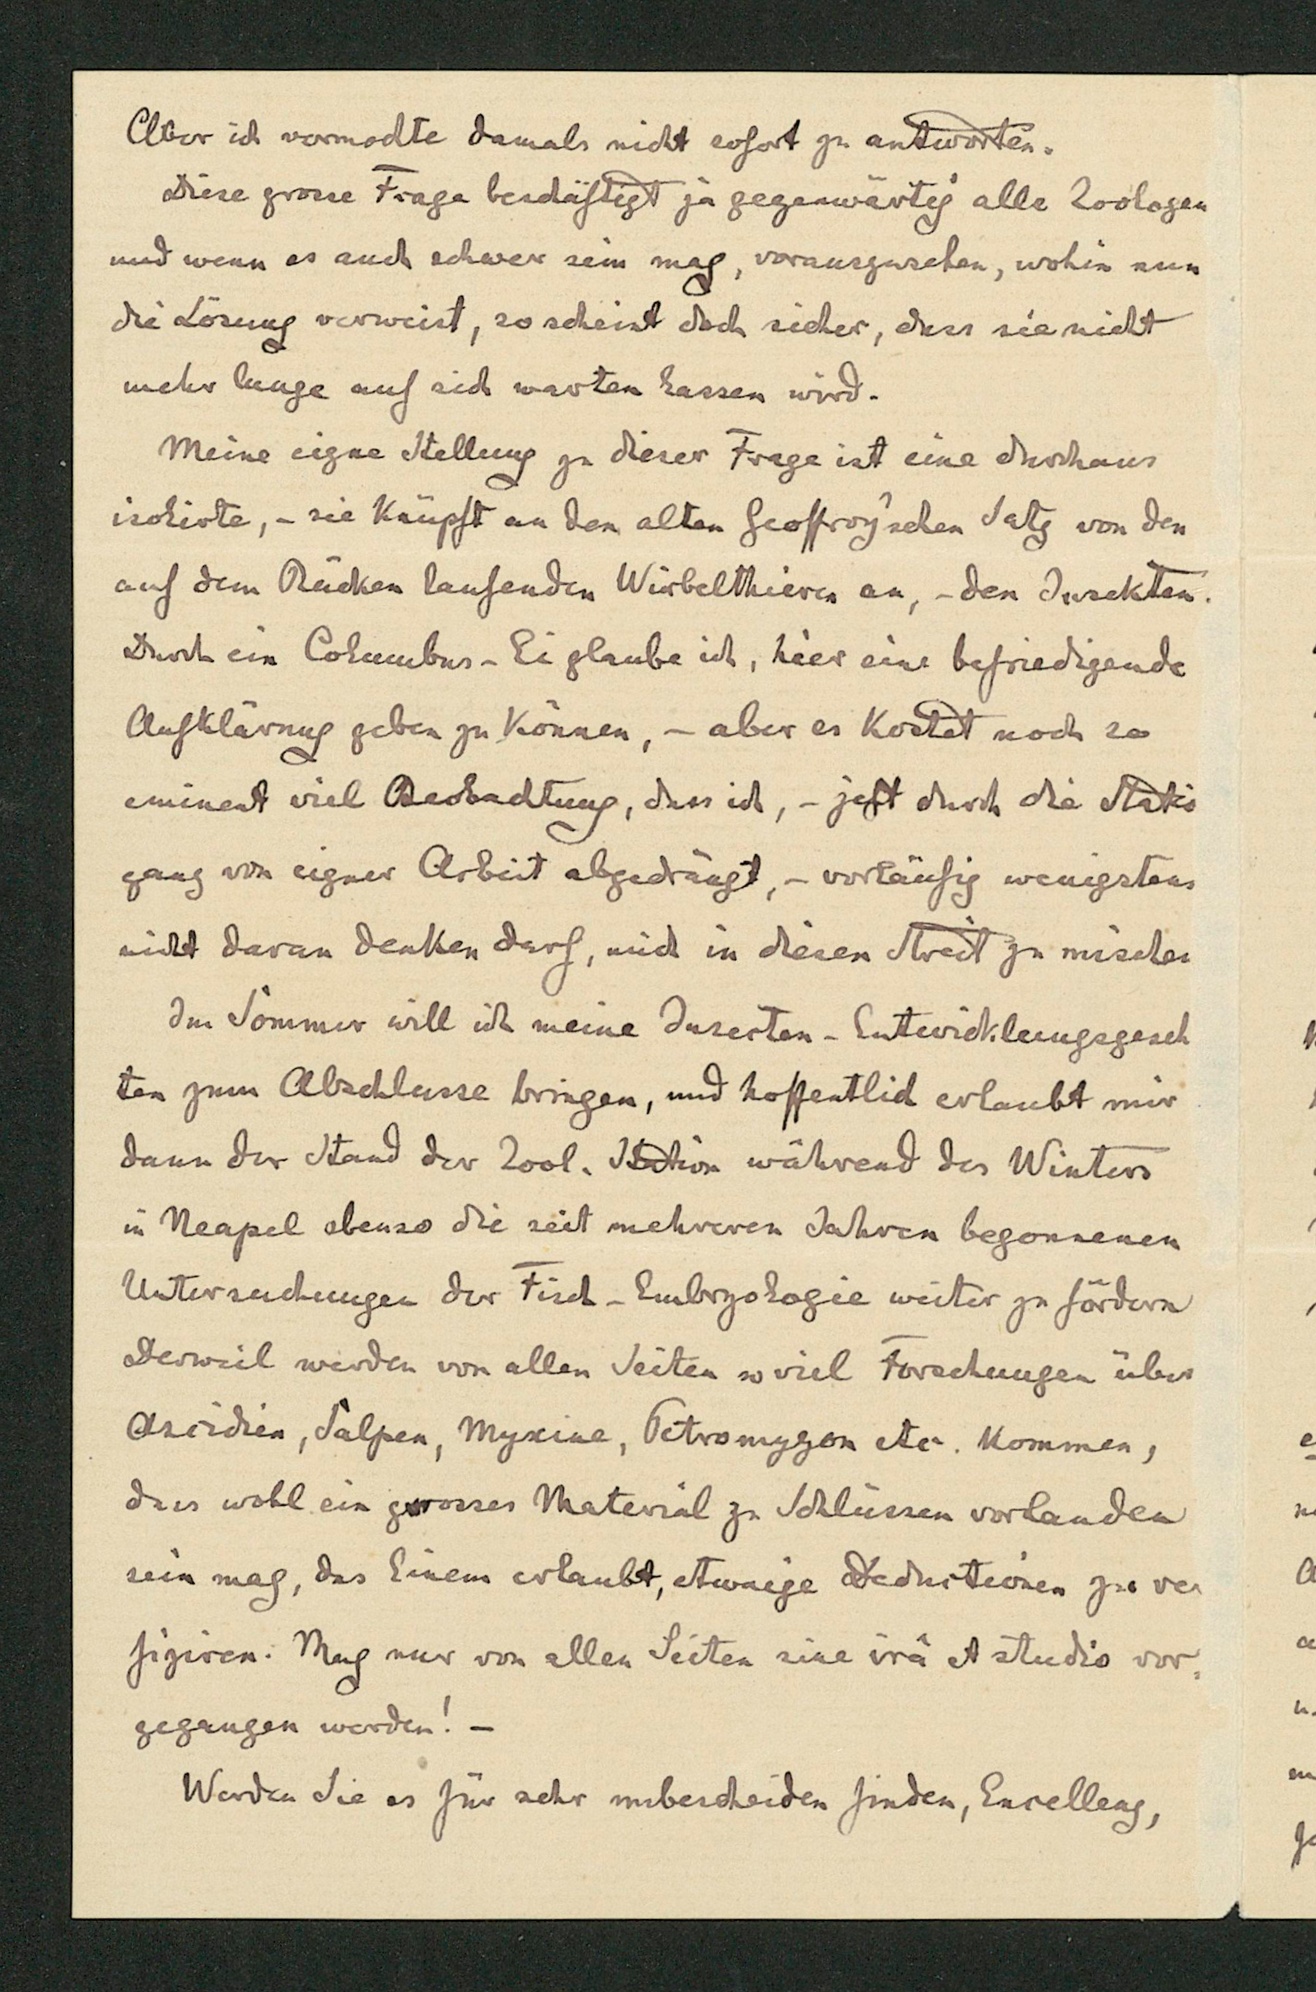 Aber ich vermochte damals nicht sofort zu antworten.
Diese grosse Frage beschäftigt ja gegenwärtig alle Zoologen
und wenn es auch schwer sein mag, vorauszusehen, wohin nun
die Lösung verweist, so scheint doch sicher, dass sie nicht
mehr lange auf sich warten lassen wird.
Meine eigne Stellung zu dieser Frage ist eine durchaus
isolirte, – sie knüpft an den alten Geoffroy'schen Satz von den
auf dem Rücken laufenden Wirbelthieren an, – den Insekten.
Durch ein Columbus-Ei glaube ich, hier eine befriedigende
Aufklärung geben zu können, – aber es kostet noch so
eminent viel Beobachtung, dass ich, – jetzt durch die Statio
ganz von eigner Arbeit abgedrängt, – vorläufig wenigstens
nicht daran denken darf, mich in diesen Streit zu mischen
Im Sommer will ich meine Insecten-Entwicklungsgesch
ten zum Abschlusse bringen, und hoffentlich erlaubt mir
dann der Stand der Zool. Station während des Winters
in Neapel ebenso die seit mehreren Jahren begonnenen
Untersuchungen der Fisch-Embryologie weiter zu fördern
Derweil werden von allen Seiten so viel Forschungen über
Ascidien, Salpen, Myxine, Petromyzon etc. kommen,
dass wohl ein grosses Material zu Schlüssen vorhanden
sein mag, das Einem erlaubt, etwaige Deductionen zu ve
fiziren. Mag nur von allen Seiten sine irâ et studio vor-
gegangen werden! –
Werden Sie es für sehr unbescheiden finden, Excellenz,